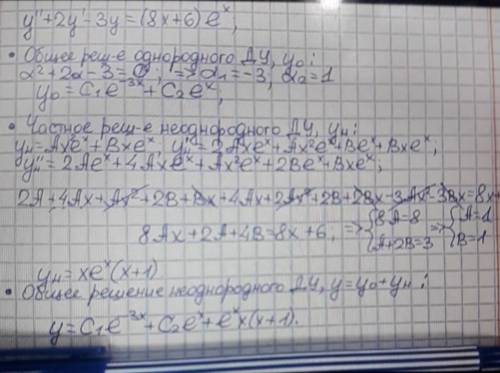 y''+2y'-3y=(8x+6)eˣ;
• Общее реш-е однородного ДУ, y₀:
α²+2α-3=0; => α₁=-3; α₂=1
y₀=C₁e⁻³ˣ+C₂eˣ;
• Частное реш-е неоднородного ДУ, yн:
yн=Ax²eˣ+Bxeˣ; yн'=2Axeˣ+Ax²eˣ+Beˣ+Bxeˣ;
yн''=2Aeˣ+4Axeˣ+Ax²eˣ+2Beˣ+Bxeˣ;
2A+4Ax+Ax²+2B+Bx+4Ax+2Ax²+2B+2Bx-3Ax²-3Bx=8x+
8Ax+2A+4B=8x+6; => {8A=8 A+2B=3 => {A=1 B=1
yн=xeˣ(x+1)
• Общее решение неоднородного ДУ, y=y₀+yн:
y=C₁e⁻³ˣ+C₂eˣ+eˣx(x+1).